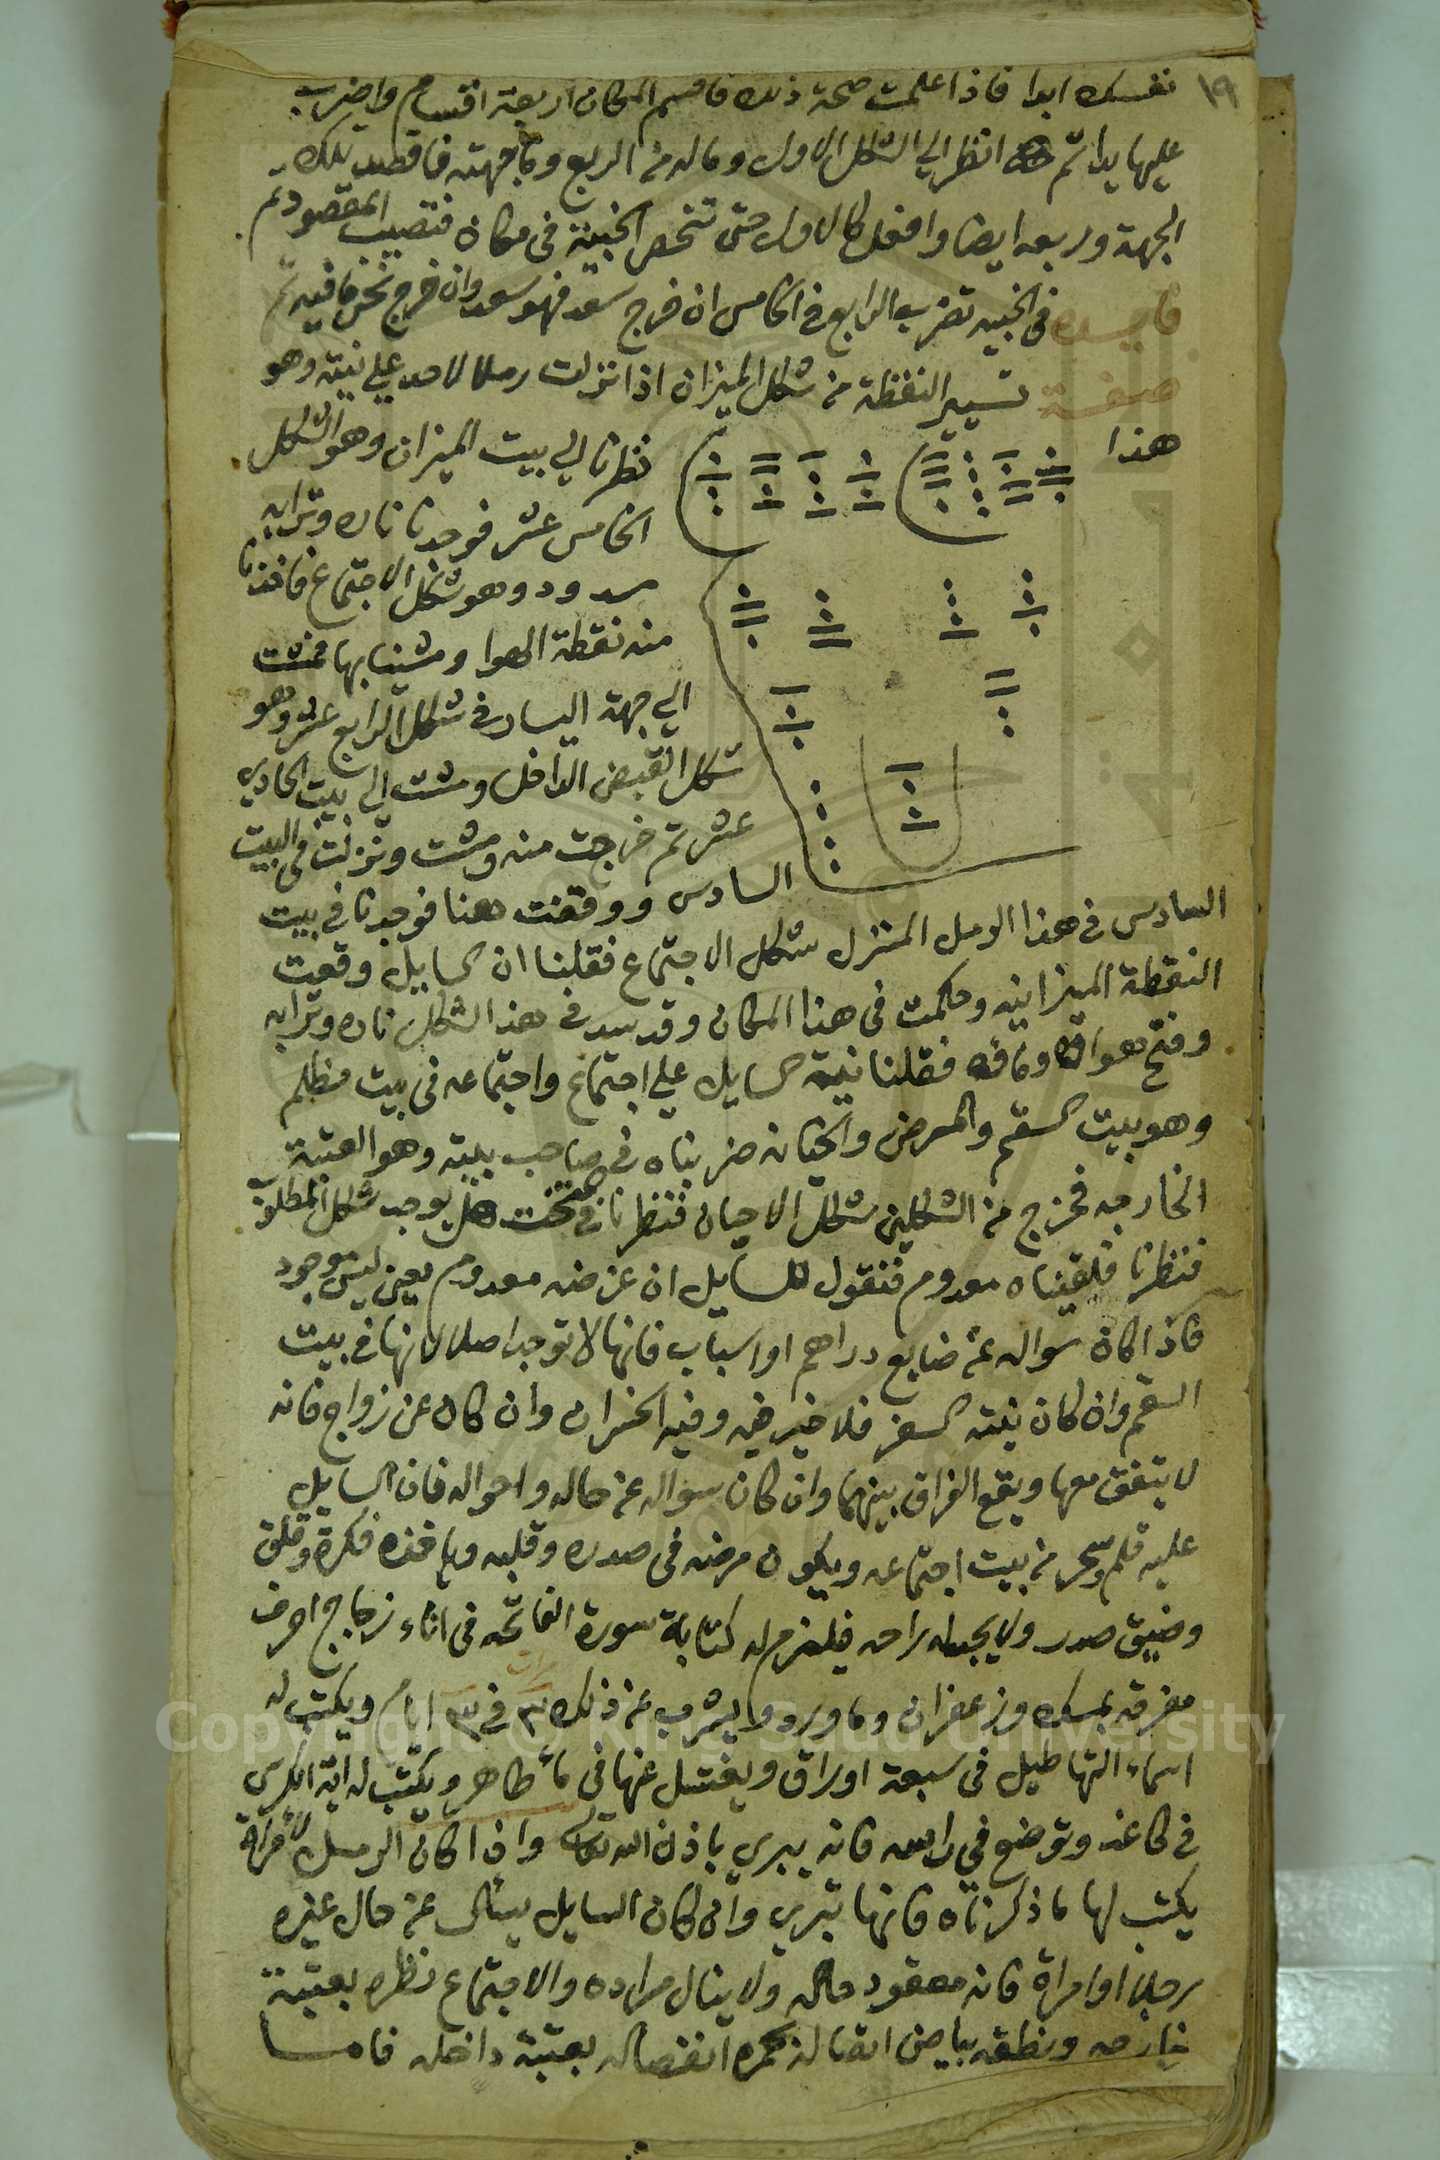 ١٩
نفسك ابدا فاذا علمت صحة ذلك فاقسم المكان اربعة اقسام واضرب
عليها يدا ثم انظر الي الشكل الاول وماله من الربع وما جهته فاقصد تلك
الجهة وربعه ايضا وافعل كالاول حتى تنحصر الخبيئة في مكان فتصيب المقصود ثم
فايده في الخبيه تضرب الرابع في الخامس ان خرج سعد فهو سعد وان خرج نحس فافيه ثم
صفة تسيير النقطة من شكل الميزان اذا نزلت رملا لاحد علي نيته وهو
هذا
نظرنا الي بيت الميزان وهو الشكل
الخامس عشر فوجدنا ناره وترابه
مسدود وهو شكل الاجتماع فاخذنا
منه نقطة الهوا ومشينا بها فمشت
الي جهة اليسار في شكل الرابع عشر وهو
شكل القبض الداخل ومشت الي بيت الحادي
عشر ثم خرجت منه ومشت ونزلت في البيت
السادس ووقفت هنا فوجدنا في بيت
السادس في هذا الرمل المنزل شكل الاجتماع فقلنا ان السايل وقعت
النقطة الميزانيه وحكمت في هذا المكان وقد سد في هذا الشكل ناره وترابه
وفتح هواه وماؤه فقلنا نية السايل علي اجتماع واجتماعه في بيت مظلم
وهو بيت السقم والمرض والخيانه ضربناه في صاحب بيته وهو العتبة
الخارجه فخرج من الشكلين شكل الاحيان فنظرنا في التخت هل يوجد شكل المطلوب
فنظرنا فلقيناه معدوم فنقول للسايل ان غرضه معدوم يعني ليس موجود
فاذا كان سواله عن ضايع دراهم او اسباب فانها لا توجد اصلا لانها في بيت
السقم وان كان نيته السفر فلا خير فيه وفيه الخسران وان كان عن زواج فانه
لا يتفق معها ويقع الفراق بينهما وان كان سواله عن حاله واحواله فان السايل
عليه قلم وسحر من بيت اجتماعه ويكون مرضه في صدره وقلبه وياخذه فكرة وقلق
وضيق صدر ولا يجد له راحه فيلزم له كتابة سورة الفاتحه في اناء زجاج احرف
مفرقه بمسك وزعفران وماورد ويشرب من ذلك ٣ مرات في ٣ ايام ويكتب له
اسماء التهاطيل في سبعة اوراق ويغتسل عنها في ماء طاهر ويكتب له اية الكرسي
في كاغد وتوضع في راسه فانه يبري باذن الله تعالى واذا كان الرمل لامراة
يكتب لها ما ذكرناه فانها تبري وان كان السايل يسأل عن حال غيره
رجلا او امراة فانه معقود حاله ولا ينال مراده والاجتماع نظره بعتبة
خارجه ونطقه بياض اتصاله بحمره انفصاله بعتبة داخله فامسا
Copyright © King Saud University